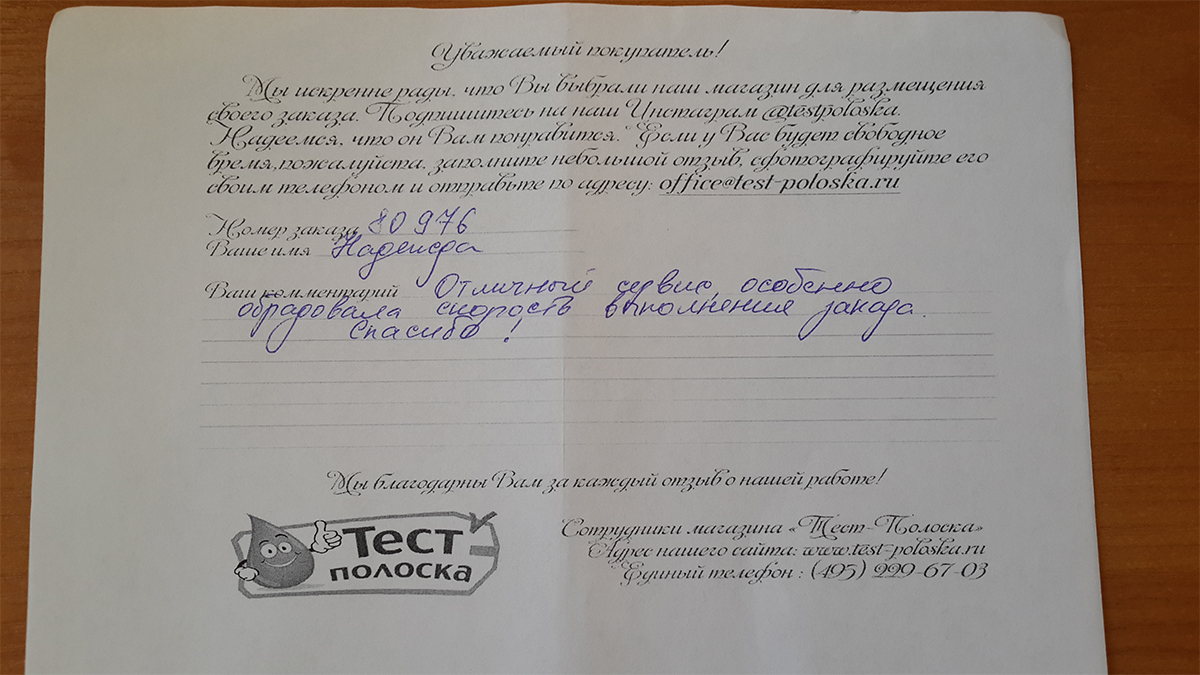 Уважаемый покупатель!
Мы искренне рады, что Вы выбрали наш магазин для размещения
своего заказа. Подпишитесь на наш Инстаграм @testpoloska.
Надеемся, что он Вам понравится. Если у Вас будет свободное
время,пожалуйста, заполните небольшой отзыв, сфотографируйте его
своим телефоном и отправьте по адресу: office@test-poloska.ru
Номер заказа 80976
Ваше имя Надежда
Ваш комментарий Отличный сервис, особенно
обрадовала скорость выполнения заказа.
Спасибо!
Мы благодарны Вам за каждый отзыв о нашей работе!
Тест
полоска
Сотрудники магазина «Тест-Полоска»
Адрес нашего сайта: www.test-poloska.ru
Единый телефон : (495) 229-67-03